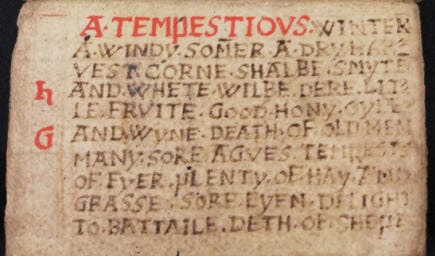 A·TEMPESTIOVS·WINTER
A·WINDY·SOMER·A·DRY·HAR
VEST·CORNE·SHALBE·SMYTE
h AND·WHETE·WILBE·DERE·LIT
LE·FRVITE·GOOD·HONY·OYLE
G AND·WYNE·DEATH·OF·OLD·MEN
MANY·SORE·AGVES·TEMPESTS
OF·FYER·PLENTY·OF·HAY·AND
GRASSE·SORE·EYEN·DELIGHT
TO·BATTAILE·DETH·OF·SHEPE